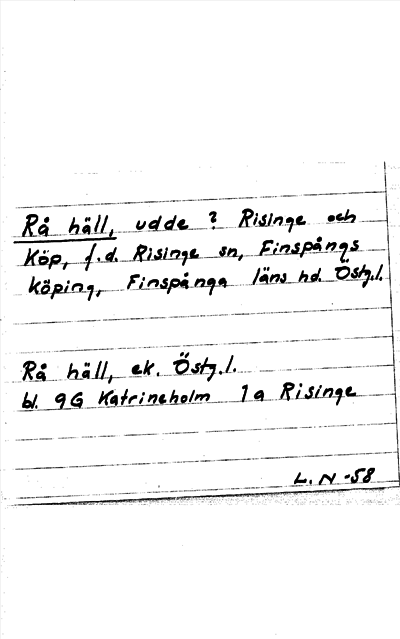 Rå häll, udde ? Risinge och
Köp, f.d. Risinge sn, Finspångs
köping, Finspånga läns hd. Östg.l.
Rå häll, ek. Östg.l.
bl. 9G Katrineholm 1a Risinge
L. N -58